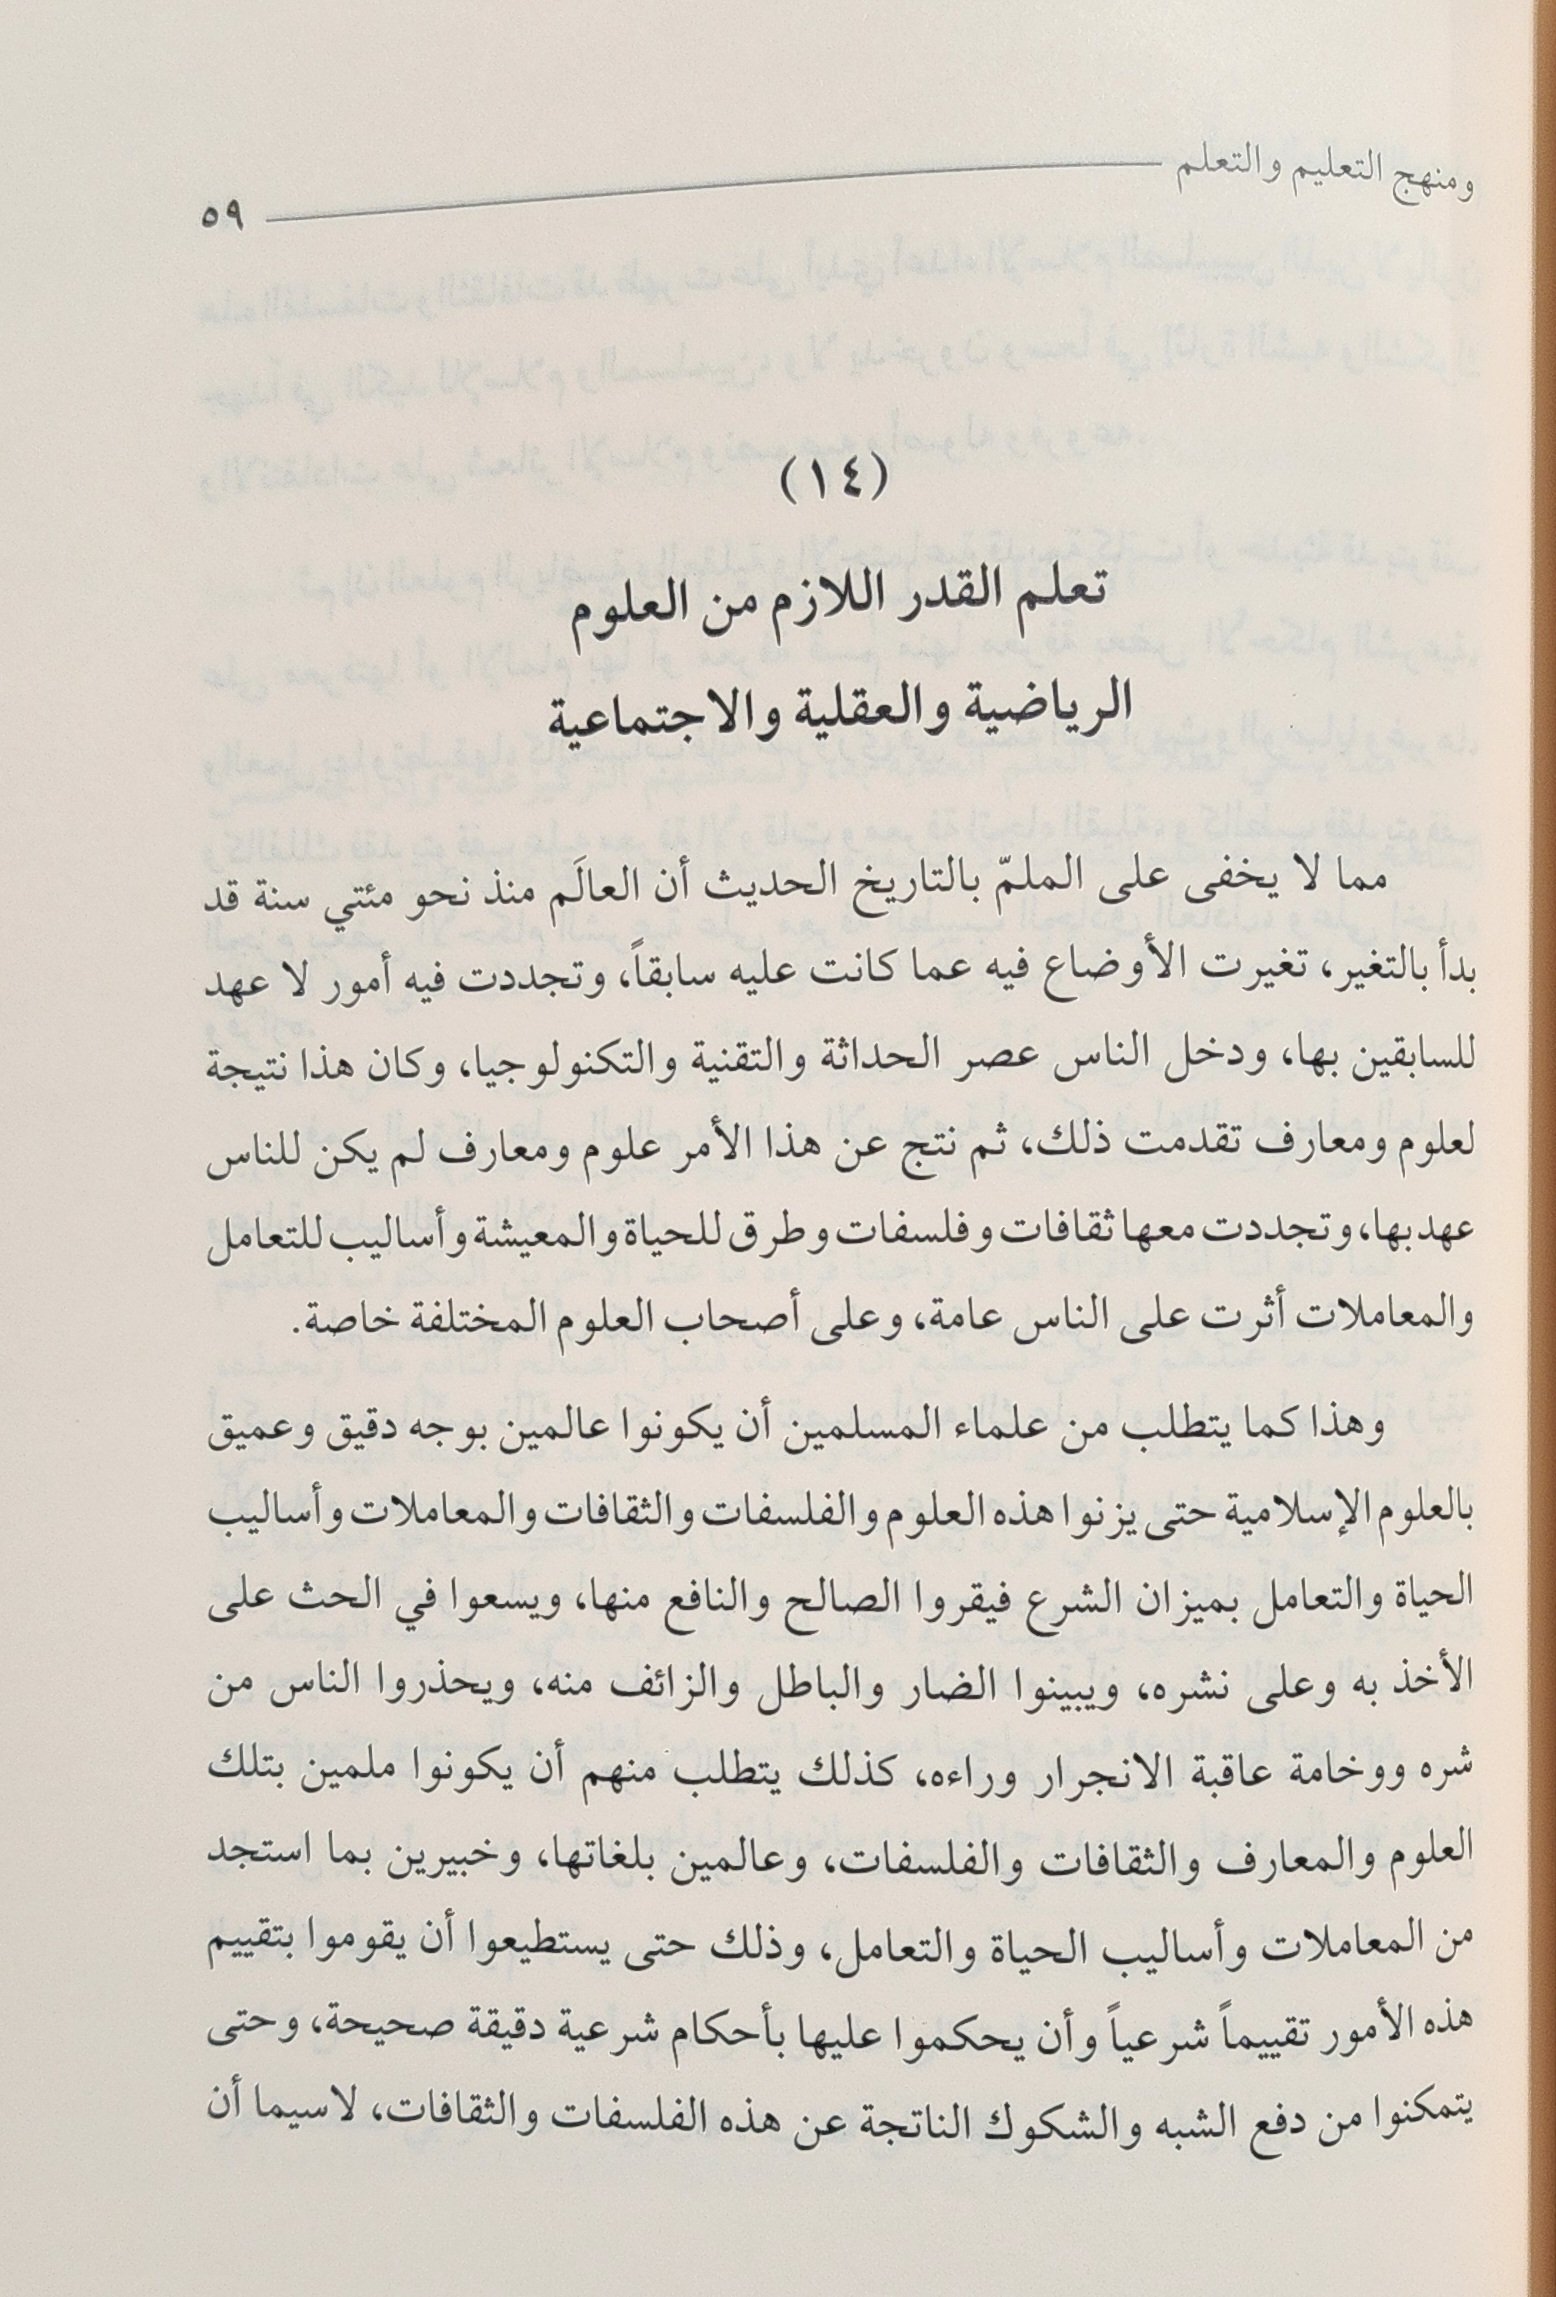 ومنهج التعليم والتعلم ٥٩
(١٤)
تعلم القدر اللازم من العلوم
الرياضية والعقلية والاجتماعية
مما لا يخفى على الملمّ بالتاريخ الحديث أن العالَم منذ نحو مئتي سنة قد
بدأ بالتغير، تغيرت الأوضاع فيه عما كانت عليه سابقاً، وتجددت فيه أمور لا عهد
للسابقين بها، ودخل الناس عصر الحداثة والتقنية والتكنولوجيا، وكان هذا نتيجة
لعلوم ومعارف تقدمت ذلك، ثم نتج عن هذا الأمر علوم ومعارف لم يكن للناس
عهد بها، وتجددت معها ثقافات وفلسفات وطرق للحياة والمعيشة وأساليب للتعامل
والمعاملات أثرت على الناس عامة، وعلى أصحاب العلوم المختلفة خاصة.
وهذا كما يتطلب من علماء المسلمين أن يكونوا عالمين بوجه دقيق وعميق
بالعلوم الإسلامية حتى يزنوا هذه العلوم والفلسفات والثقافات والمعاملات وأساليب
الحياة والتعامل بميزان الشرع فيقروا الصالح والنافع منها، ويسعوا في الحث على
الأخذ به وعلى نشره، ويبينوا الضار والباطل والزائف منه، ويحذروا الناس من
شره ووخامة عاقبة الانجرار وراءه، كذلك يتطلب منهم أن يكونوا ملمين بتلك
العلوم والمعارف والثقافات والفلسفات، وعالمين بلغاتها، وخبيرين بما استجد
من المعاملات وأساليب الحياة والتعامل، وذلك حتى يستطيعوا أن يقوموا بتقييم
هذه الأمور تقييماً شرعياً وأن يحكموا عليها بأحكام شرعية دقيقة صحيحة، وحتى
يتمكنوا من دفع الشبه والشكوك الناتجة عن هذه الفلسفات والثقافات، لاسيما أن